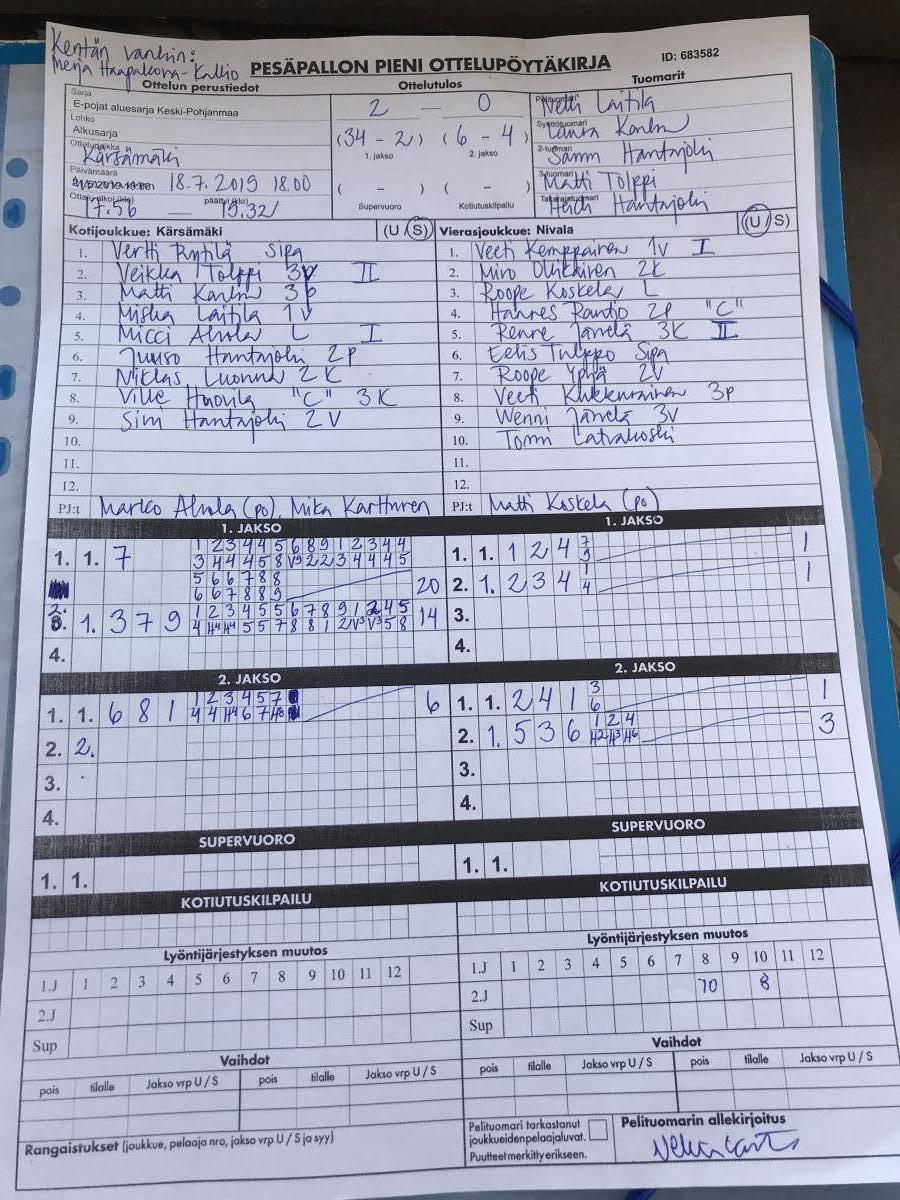 Kentän vanhin:
Merja Haapakorva-Kallio
PESÄPALLON PIENI OTTELUPÖYTÄKIRJA
ID: 683582
Ottelun perustiedot
Ottelutulos
Tuomarit
Sarja
E-pojat aluesarja Keski-Pohjanmaa
Lohko
Alkusarja
Ottelupaikka
Kärsämäki
Päivämäärä
18.7.2019 18.00
Ottelu alkoi (klo) päättyi (klo)
17.56 — 19.32
2 — 0
(34 - 2) (6 - 4)
1. jakso 2. jakso
( - ) ( - )
Supervuoro Kotiutuskilpailu
Pelituomari
Laitila
Syöttötuomari
Laura
2-tuomari
Hantajohi
3-tuomari
Matti Tolppi
Takarajatuomari
Heidi Hantajohi
Kotijoukkue: Kärsämäki (U / S)
1. Vertti Rytilä Sipa
2. Veikka Tolppi II
3. Matti 3p
4. Miska Laitila 1v
5. Micci Ahola L I
6. Juuso Hantajohi 2p
7. Niklas Luonua 2K
8. Ville "C" 3K
9. Hantajohi 2V
10.
11.
12.
PJ:t Marko Ahola (po), Mika Karttunen
Vierasjoukkue: Nivala (U / S)
1. Veeti Kemppainen 1v I
2. Miro 2K
3. Roope Koskela L
4. Hannes Rautio 2p "C"
5. Järvelä 3K II
6. Eelis Tulppo Sipa
7. Roope 2V
8. Veeti 3p
9. Wenni Järvelä 3v
10. Tommi Latvakoski
11.
12.
PJ:t Matti Koskela (po)
1. JAKSO
1. 1. 7 1 2 3 4 4 5 6 8 9 1 2 3 4 4
3 4 4 4 5 8 V9 2 2 3 4 4 4 5
5 6 6 7 8 8
6 6 7 8 8 9 20
2. 1. 3 7 9 1 2 3 4 5 5 6 7 8 9 1 2 4 5
4 H4 H4 5 5 7 8 8 1 2 V3 V3 5 8 14
4.
1. JAKSO
1. 1. 1 2 4 7
9 1
2. 1. 2 3 4 1
4 1
3.
4.
2. JAKSO
1. 1. 6 8 1 1 2 3 4 5 7
4 4 H4 6 7 H8 6
2. 2.
3.
4.
2. JAKSO
1. 1. 2 4 1 3
6 1
2. 1. 5 3 6 1 2 4
H2 H3 H6 3
3.
4.
SUPERVUORO
1. 1.
SUPERVUORO
1. 1.
KOTIUTUSKILPAILU
KOTIUTUSKILPAILU
Lyöntijärjestyksen muutos
1.J 1 2 3 4 5 6 7 8 9 10 11 12
2.J
Sup
Lyöntijärjestyksen muutos
1.J 1 2 3 4 5 6 7 8 9 10 11 12
2.J 10 8
Sup
Vaihdot
pois tilalle Jakso vrp U / S pois tilalle Jakso vrp U / S
Vaihdot
pois tilalle Jakso vrp U / S pois tilalle Jakso vrp U / S
Rangaistukset (joukkue, pelaaja nro, jakso vrp U / S ja syy)
Pelituomari tarkastanut
joukkueiden pelaajaluvat.
Puutteet merkitty erikseen.
Pelituomarin allekirjoitus